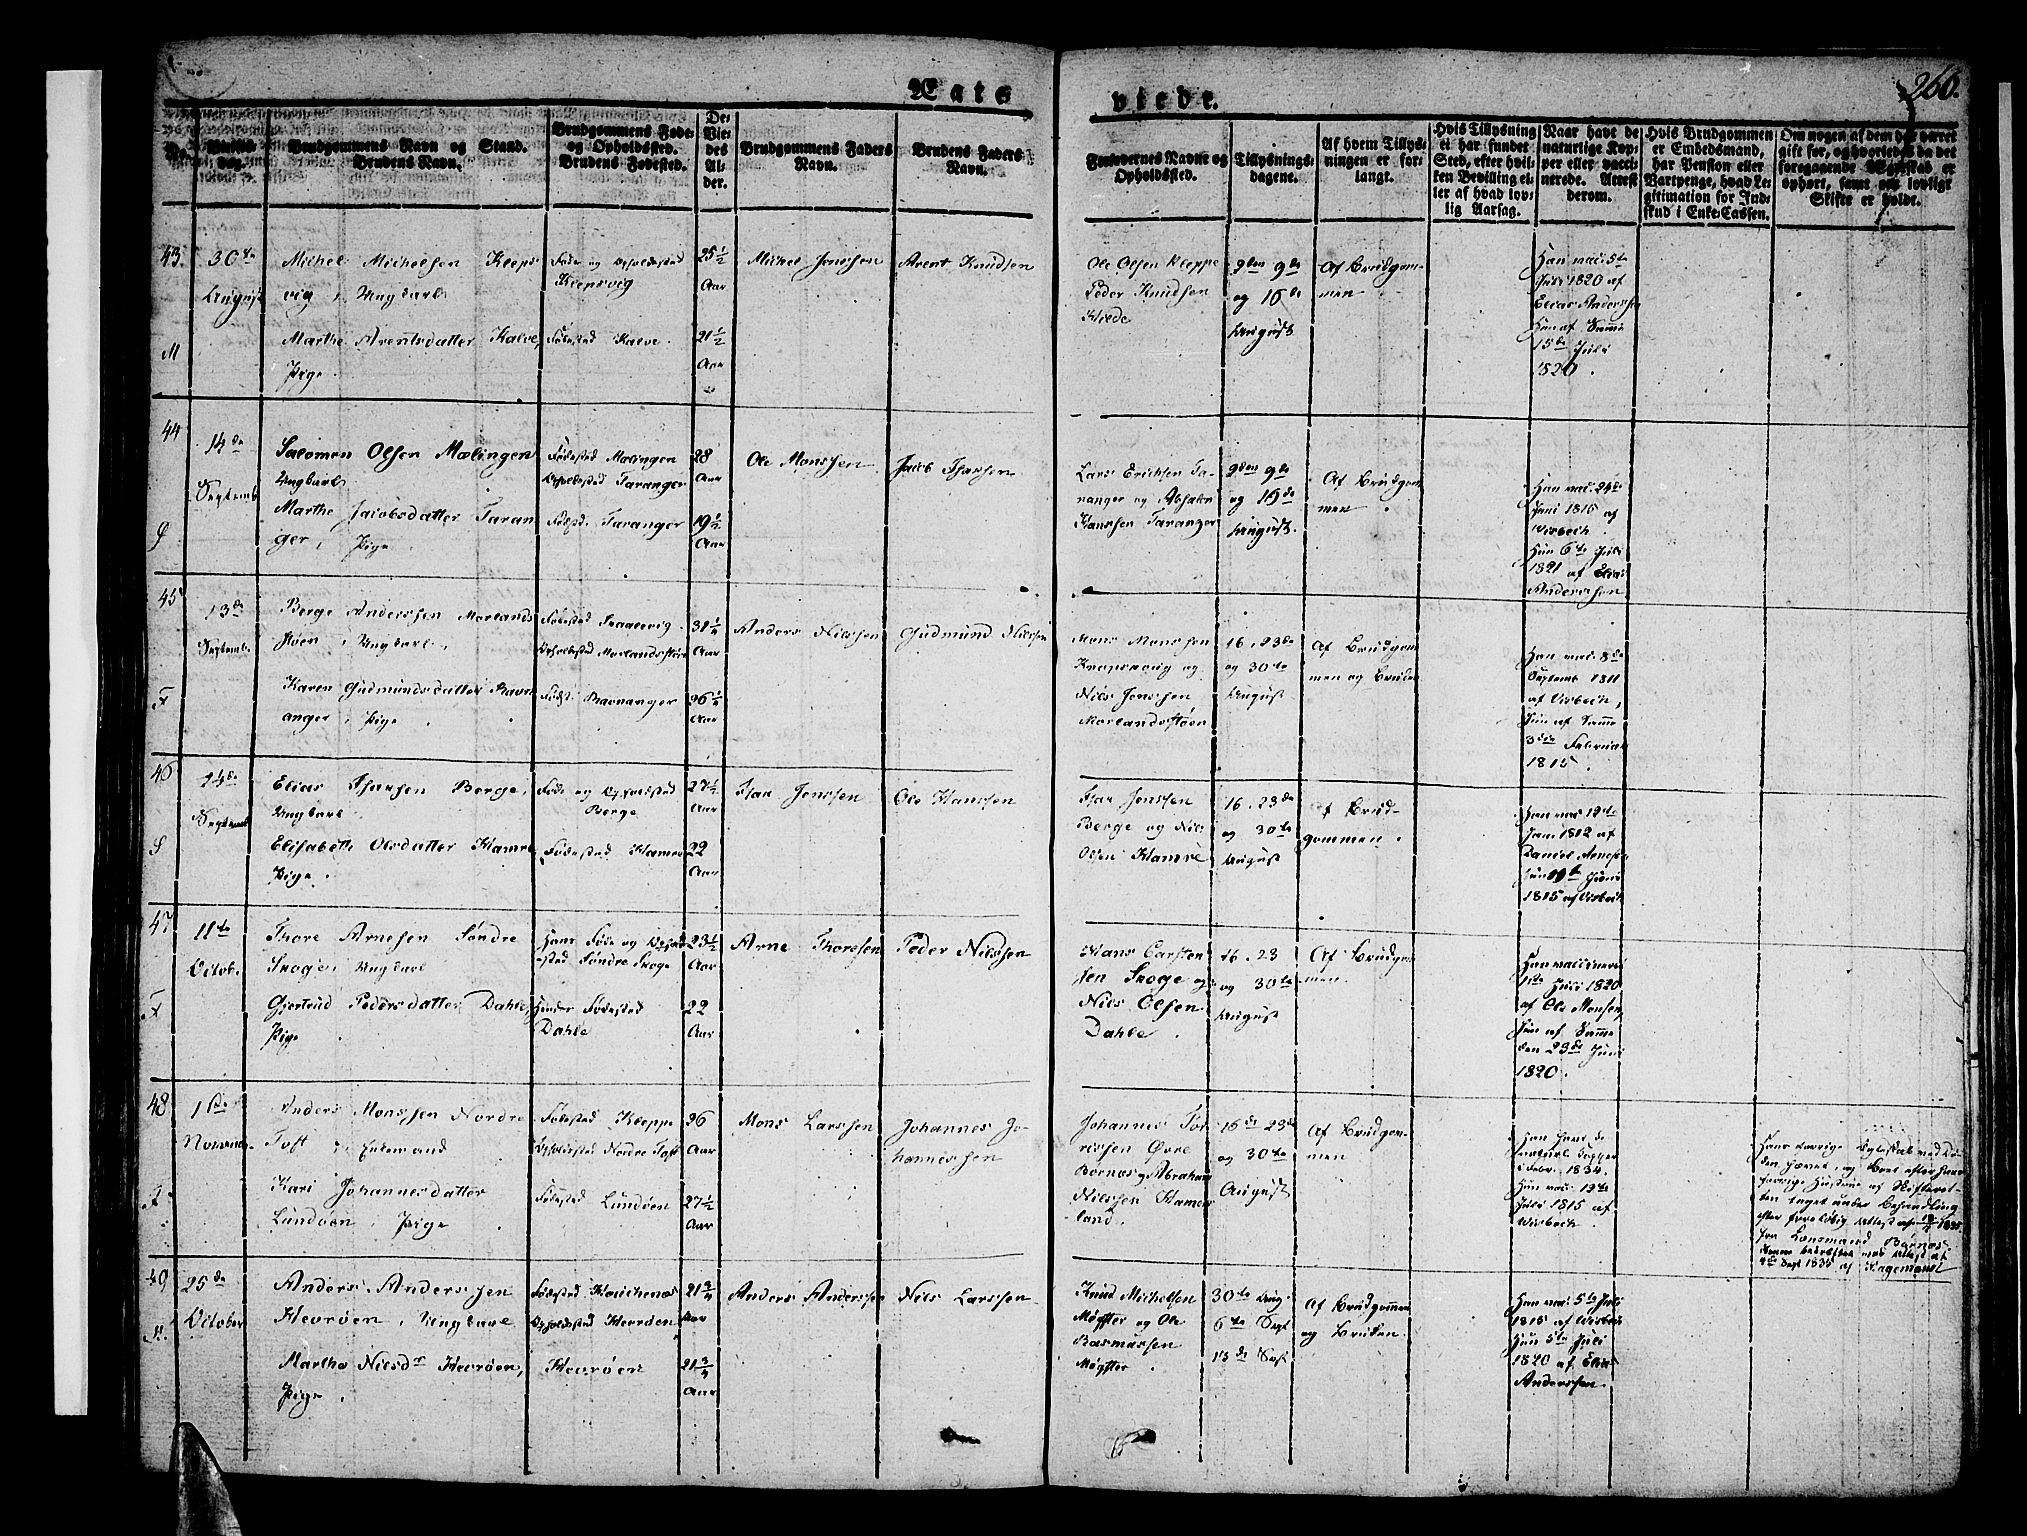 260.
Vats
viede.
Vielses
dag.
Brudgommens Navn og Stand.
Brudens Navn.
Brudgommens Føde
og Opholdssted.
Brudens Fødested.
De
Vie
des
Al
der.
Brudgommens Faders
Navn.
Brudens Faders
Navn.
Forlovernes Navne og
Opholdssted.
Tillysnings-
dagene.
Af hvem Tillys-
ningen er for-
langt.
Hvis Tillysning
ei har fundet
Sted, efter hvil-
ken Bevilling el-
ler af hvad lov-
lig Aarsag.
Naar havt de
naturlige Kop-
per eller vacci-
nerede. Attest
derom.
Hvis Brudgommen
er Embedsmand,
har Pension eller
Vartpenge, hvad Le-
gitimation for Ind-
skud i Enke-Cassen.
Om nogen af dem har været
gift før, og hvorledes da det
foregaaende Ægteskab er
ophørt, samt om lovligt
Skifte er holdt.
43. 30te August
M
Michel Michelsen Kleps
vig, Ungkarl
Marthe Arentsdatter Kalve,
Pige.
Føde og Opholdssted
Klepsvig
Fødested Kalve.
25 1/2
Aar
21 1/2
Aar
Michel Jonssen
Arent Knudsen
Ole Olsen Kleppe
Peder Knudsen
9de
og 16de
August
Af Brudgom-
men
Han vac. 5te
Juli 1820 af
Elias Anderssen
Hun af Samme
15de Juli
1820.
44
14de
Septemb
Salomon Olsen Mælingen
Ungkarl
Marthe Jacobsdatter Taran
ger, Pige.
Fødested Mælingen
Opholdssted Taranger
Fødest. Taranger
28
Aar
19 1/2
Aar
Ole Monssen
Jacob
Lars Erichsen Ta-
ranger og Absalon
Hanssen Taranger
9de
og 16de
August.
Af Brudgom
men.
Han vac. 24de
Juni 1816 af
Wisbech.
Hun 6te Juli
1821 af Elias
Anderssen
45
13de
Septemb.
Berge Anderssen Morlands
støen, Ungkarl,
Karen Gudmundsdatter Ravn
anger, Pige.
Fødested
Opholdssted Morlandsstøen
Fødest. Ravnanger
31 1/4
Aar
26 1/4
Aar
Anders Nilssen
Gudmund Nilssen
Mons Monssen
og
Nils Jonssen
Morlandsstøen
16. 23de
og 30te
August
Af Brudgom
men og Bruden
Han vac. 8de
Septemb 1811
af Wisbech,
Hun af Samme
3die Februar
1815.
46
24de
Septemb
S
Elias Berge,
Ungkarl.
Elisabeth Olsdatter Hamre
Pige.
Føde og Opholdssted
Berge
Fødested Hamre
27 1/2
Aar
22
Aar
Jonssen
Ole Hanssen
Jonssen
Berge og Nils
Olsen Hamre
16. 23de
og 30te
August
Af Brud-
gommen.
Han vac 12te
Juni 1812 af
Daniel Arnesen
Hun Juni
1815 af Wisbech
47
11te
Octob.
Thore Arnesen Søndre
Skoge, Ungkarl
Gjertrud Pedersdatter Dahle,
Pige
Hans Føde og Ophold
sted Søndre Skoge
Hendes Fødested
Dahle
23 1/2
Aar
22
Aar
Arne Thoresen
Peder Nilssen
Hans Carsten
sen Skoge og
Nils Olsen
Dahle.
16. 23
og 30te
August
Af Brudgom
men.
Han vaccineret
Juli 1820
af Ole Monsen,
Hun af Samme
den 23de Juni
1820.
48
1ste
Novemb.
Anders Monssen Nordre
Toft, Enkemand
Kari Johannesdatter
Lundøen, Pige
Fødested Kleppe
Opholdssted Nordre Toft
Fødested Lundøen
26
Aar
27 1/2
Aar
Mons Larssen
Johannes Jo-
hannessen
Johannes Tor
rissen Øvre
Børnes og Abraham
Nilssen Hamer
land.
16de 23de
og 30te
August
Af Brudgom-
men
Han havt de
naturl. Kopper
i Febr. 1834.
Hun vac. 12te
Juli 1815 af
Wisbech.
Hans forrige Egteskab ved Dø-
den hævet, og Boet efter hans
forrige Hustrue af Skifteret-
ten taget under Behandling
efter foreløbig Attest af 1835
fra Lensmand Børnes
Sept 1835 af Hagemand
49
25de
October
Anders Anderssen
Hevrøen, Ungkarl
Marthe Nilsdr Hevrøen,
Pige.
Fødested
Opholdssted Hevrøen
Hevrøen
21 3/4
Aar
21 3/4
Aar
Anders Anderssen
Nils Larssen
Knud Michelsen
Møgster og Ole
Rasmussen
Møgster.
30te Aug.
6te Sept
13de Sept
Af Brudgommen
og Bruden.
Han vac. 5te Juli
1815 af Wisbech
Hun 5te Juli
1820 af Elias
Anderssen.